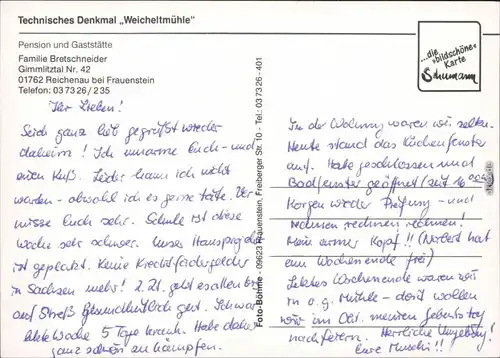 Technisches Denkmal „Weicheltmühle"
Pension und Gaststätte
Familie Bretschneider
Gimmlitztal Nr. 42
01762 Reichenau bei Frauenstein
Telefon: 03 73 26 / 2 35
...die »bildschöne« Karte
Schumann
Foto-Böhme - 09623 Frauenstein, Freiberger Str. 10 - Tel.: 03 73 26 - 401
Ihr Lieben!
Seid ganz lieb gegrüßt wieder
daheim! Ich umarme Euch - und
einen Kuß. Leider kann ich nicht
warten - obwohl ich es gerne täte. Ver-
misse Euch sehr. Schule ist diese
Woche sehr schwer. Unser Hausprojekt
ist geplatzt. Keine
in Sachsen mehr! z. Zt. geht es allen bis
auf Streß gesundheitlich gut. Ich war
letzte Woche 5 Tage krank. Habe daher
ganz schön zu kämpfen.
In der Wohnung waren wir selten.
Heute stand das Küchenfenster
auf. Habe geschlossen und
Badfenster geöffnet (seit 16 00
Morgen wieder Prüfung - und
rechnen rechnen rechnen!
Mein armer Kopf!! (Norbert hat
am Wochenende frei)
Letztes Wochenende waren wir
in o.g. Mühle - dort wollen
wir im Okt. meinen Geburtstag
nachfeiern. Herrliche Umgebung!
Eure Muschi!!